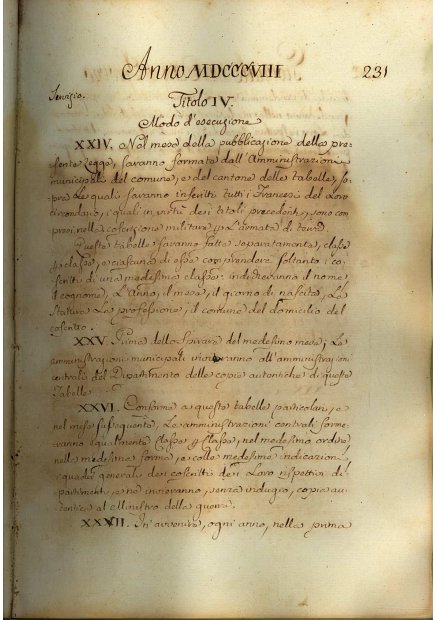 Anno MDCCCVIII 231
Servizio.
Titolo IV.
Modo d'esecuzione
XXIV. Nel mese della pubblicazione della pre-
sente Legge, saranno formate dall'Amministrazioni
municipali del comune, e del cantone delle tabelle, so-
pra Le quali saranno inscritti tutti i Francesi del Loro
circondario, i quali in virtù dei titoli precedenti, sono com-
presi nella coscrizione militare L'armata di terra.
Queste tabelle saranno fatte separatamente, classe
classe, e ciascuna di esse comprenderà soltanto i co-
scritti di una medesima classe: indicheranno il nome
il cognome, L'Anno, il mese, il giorno di nascita, La
statura, La professione, il comune del domicilio del
coscritto.
XXV. Prima dello Spirare del medesimo mese, Le
amministrazioni municipali invieranno all'amministrazioni
centrali del Dipartimento delle copie autentiche di queste
Tabelle.
XXVI. Conforme a queste tabelle particolari, e
nel mese susseguente, Le amministrazioni centrali forme-
ranno egualmente classe classe, nel medesimo ordine,
nelle medesime forme, e colle medesime indicazioni,
i quadri generali dei coscritti dei Loro rispettivi di-
partimenti, e ne invieranno, senza indugio, copia au-
tentica al Ministro della guerra.
XXVII. In avvenire, ogni anno, nella prima